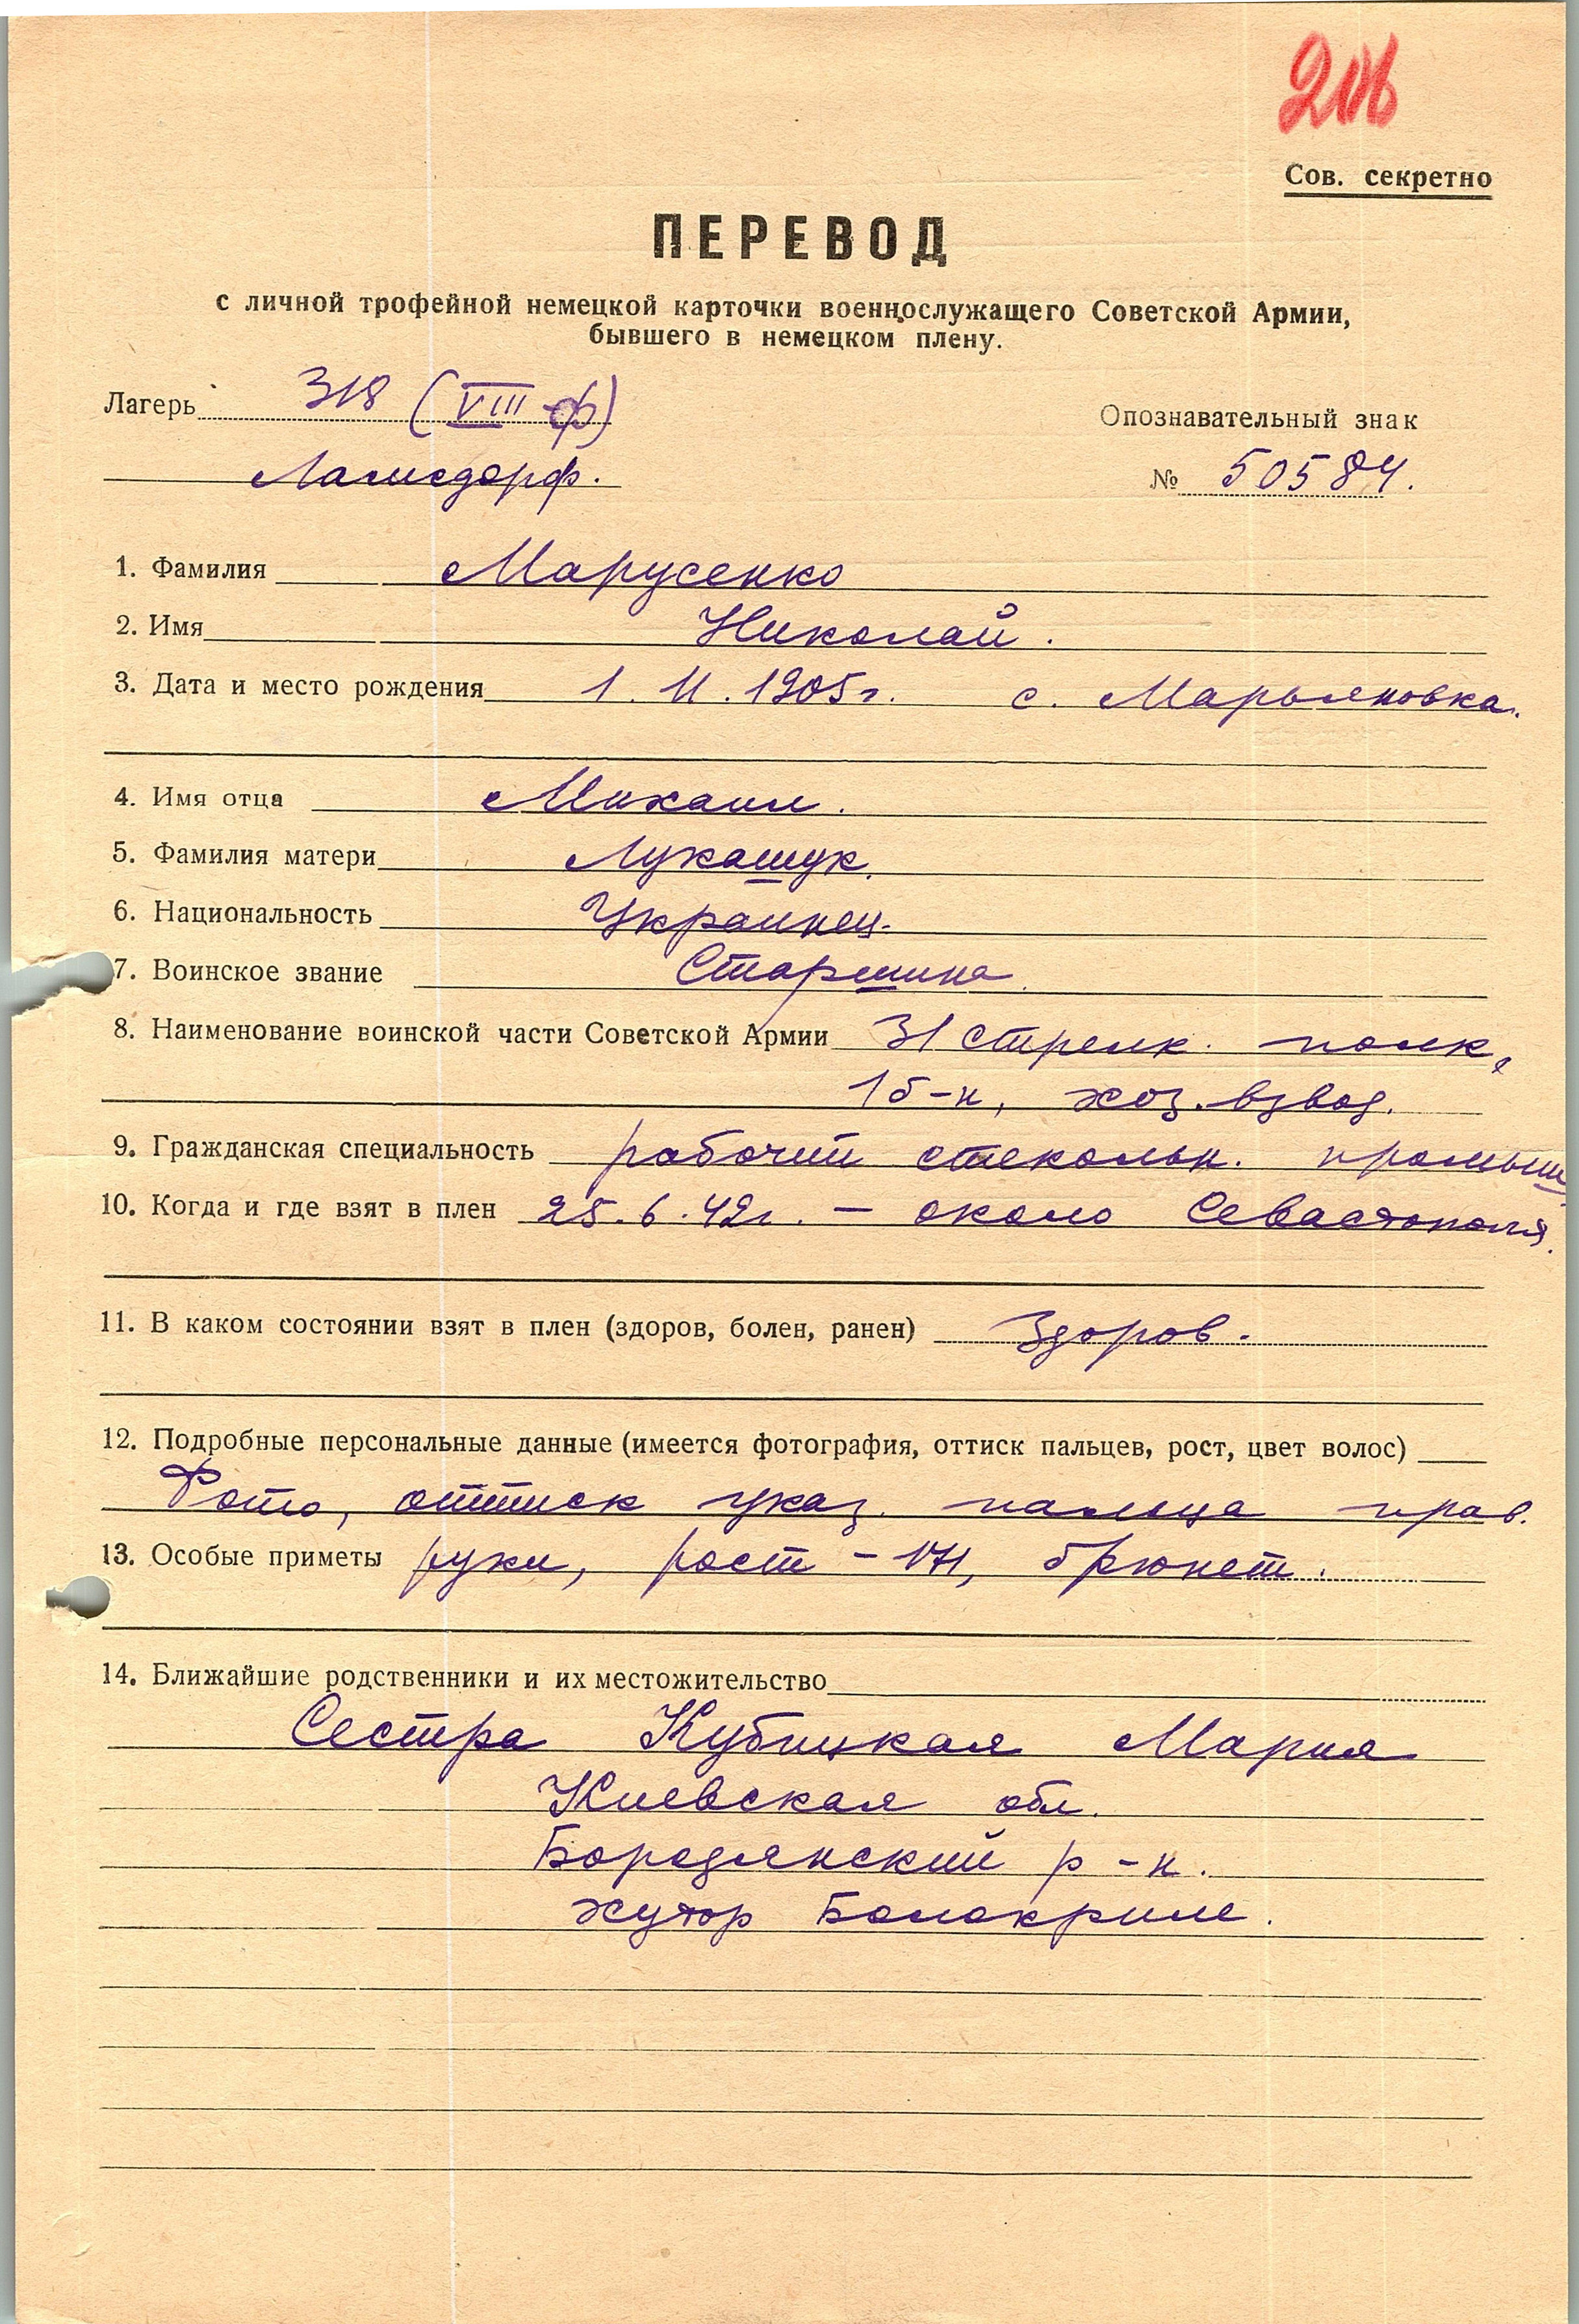 206
Сов. секретно
ПЕРЕВОД
с личной трофейной немецкой карточки военнослужащего Советской Армии,
бывшего в немецком плену.
Лагерь 318 (VIII-ф)
Опознавательный знак
Ламсдорф.
№ 50584.
1. Фамилия Марусенко
2. Имя Николай.
3. Дата и место рождения 1. 11. 1905 г. с. Марьяновка.
4. Имя отца Михаил.
5. Фамилия матери Лукашук.
6. Национальность Украинец.
7. Воинское звание Старшина.
8. Наименование воинской части Советской Армии 31 стрелк. полк,
1 б-н, хоз. взвод.
9. Гражданская специальность рабочий стекольн. промыш
10. Когда и где взят в плен 25.6.42 г. – около Севастополя.
11. В каком состоянии взят в плен (здоров, болен, ранен) Здоров.
12. Подробные персональные данные (имеется фотография, оттиск пальцев, рост, цвет волос)
Фото, оттиск указ. пальца прав.
13. Особые приметы руки, рост – 171, брюнет.
14. Ближайшие родственники и их местожительство
Сестра Кубицкая Мария
Киевская обл.
Бородянский р-н.
хутор